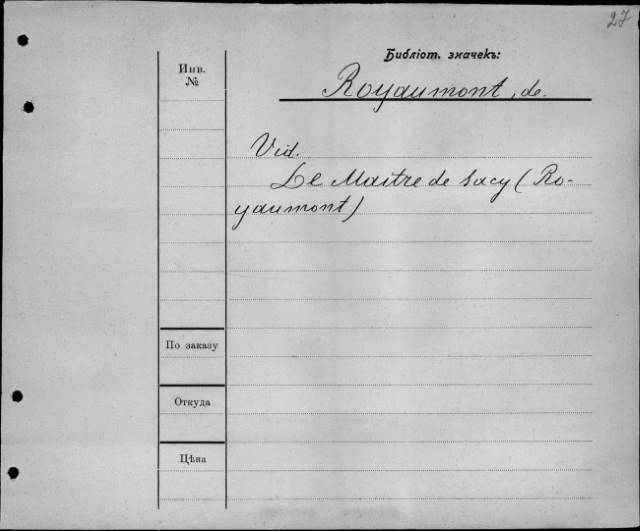 27
Библіот. значекъ:
Инв.
№
Royaumont, de.
Vid.
Le Maitre de Sacy (Ro-
yaumont)
По заказу
Откуда
Цѣна